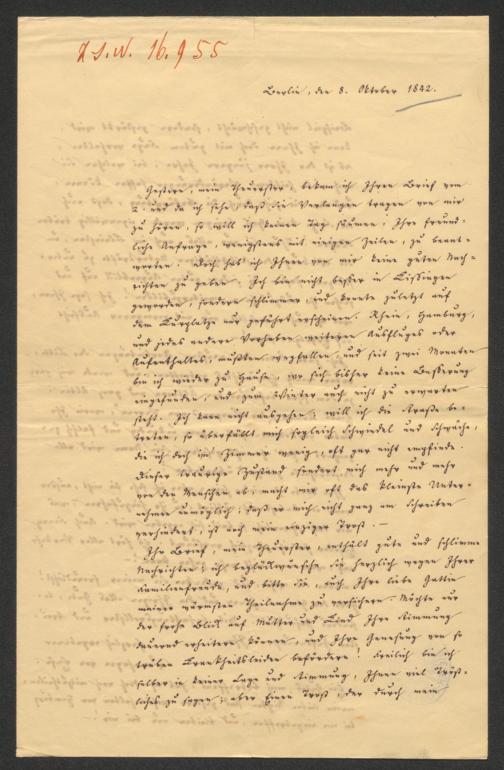 Z.S.W. 16.955
Berlin, den 8. Oktober 1842.
Gestern, mein Theuerster, bekam ich Ihren Brief vom
2. und da ich sehe, daß Sie Verlangen tragen von mir
zu hören, so will ich keinen Tag säumen, Ihre freund-
liche Anfrage, wenigstens mit einigen Zeilen, zu beant-
worten. Doch hab' ich Ihnen von mir keine guten Nach-
richten zu geben. Ich bin nicht besser in Kissingen
geworden, sondern schlimmer, und konnte zuletzt auf
dem Kurplatze nur geführt erscheinen. Rhein, Hamburg,
und jedes andere Vorhaben weiteren Ausfluges oder
Aufenthaltes, mußten wegfallen, und seit zwei Monaten
bin ich wieder zu Hause, wo sich bisher keine Besserung
eingefunden, und zum Winter auch nicht zu erwarten
steht. Ich kann nicht ausgehen; will ich die Straße be-
treten, so überfällt mich sogleich Schwindel und Schwäche,
die ich doch im Zimmer wenig, oft gar nicht empfinde.
Dieser traurige Zustand sondert mich mehr und mehr
von den Menschen ab, macht mir oft das kleinste Unter-
nehmen unmöglich; daß er mich nicht ganz am Schreiben
verhindert, ist noch mein einziger Trost. —
Ihr Brief, mein Theuerster, enthält gute und schlimme
Nachrichten; ich beglückwünsche Sie herzlich wegen Ihrer
Familienfreude, und bitte Sie, auch Ihre liebe Gattin
meiner wärmsten Theilnahme zu versichern. Möchte nur
der frohe Blick auf Mutter und Kind Ihre Stimmung
dauernd erheitern können, und Ihre Genesung von so
trüben Krankheitsleiden befördern! Freilich bin ich
selber in keiner Lage und Stimmung, Ihnen viel Tröst-
liches zu sagen; aber Einen Trost, der durch mein